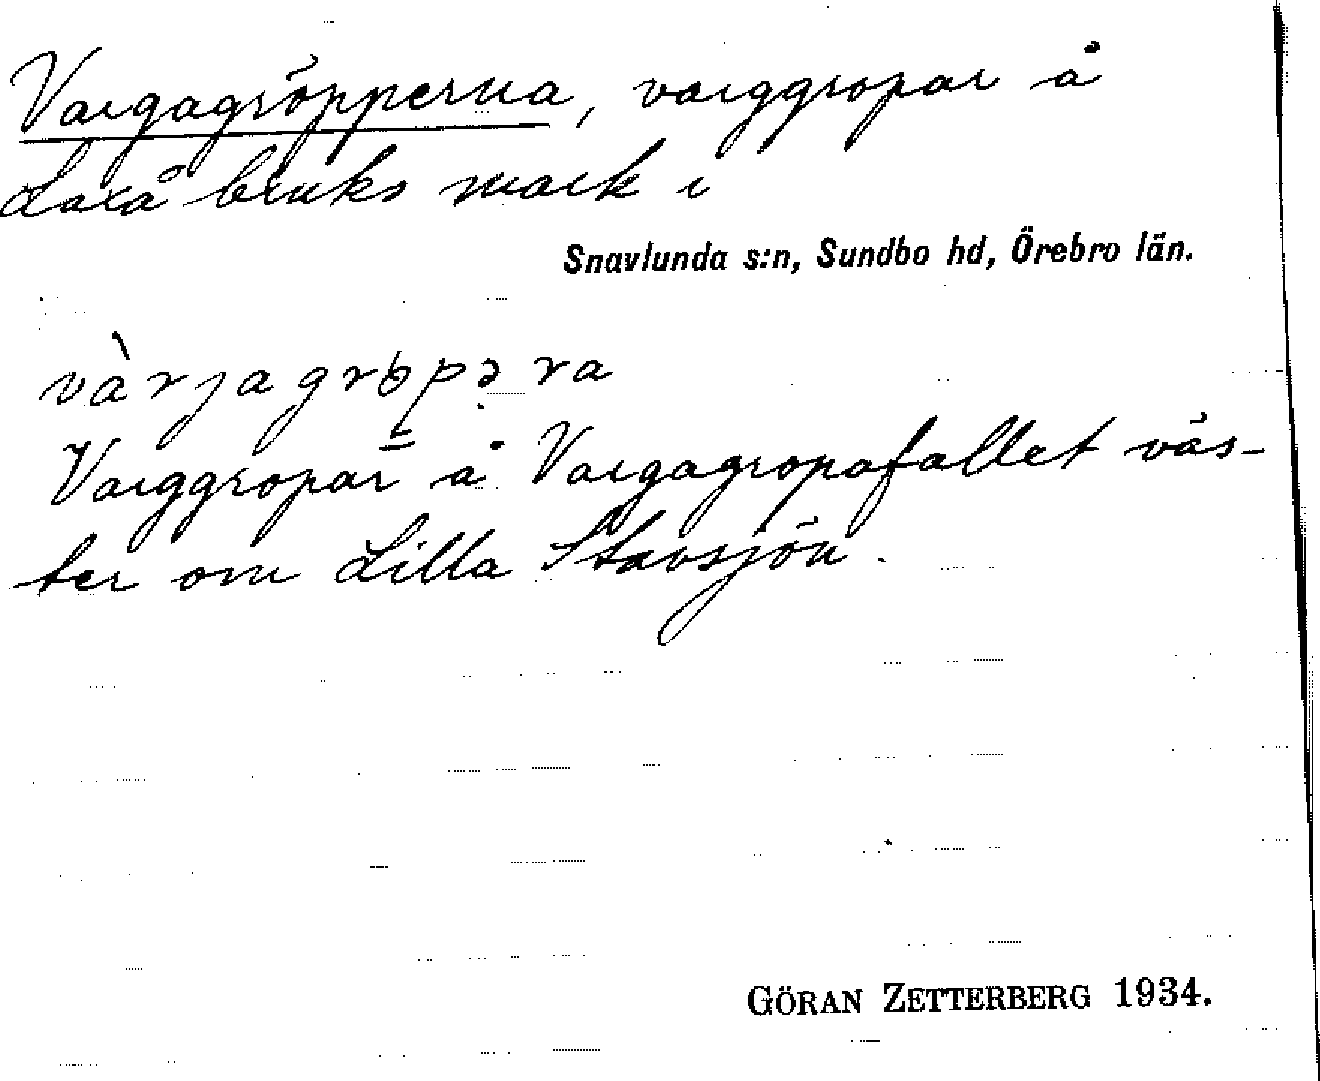 Vargagröpperna, varggropar å
Laxå bruks mark i
Snavlunda s:n, Sundbo hd, Örebro län.
vàrjagrɵpə̣ra
Varggropar å Vargagropafallet väs-
ter om Lilla Stavsjön.
GÖRAN ZETTERBERG 1934.